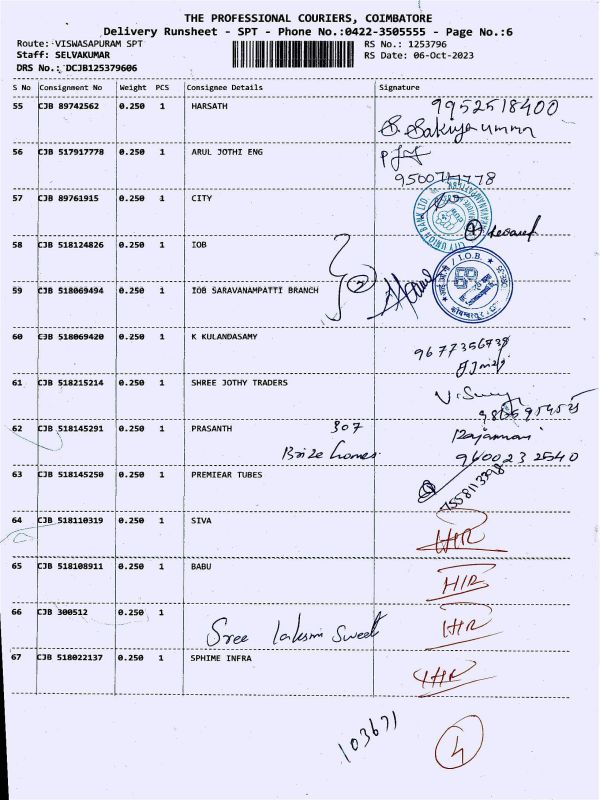 THE PROFESSIONAL COURIERS, COIMBATORE
Delivery Runsheet - SPT - Phone No.:0422-3505555 - Page No.:6
Route: VISWASAPURAM SPT
RS No.: 1253796
Staff: SELVAKUMAR
RS Date: 06-Oct-2023
DRS No.: DCJB125379606
S No Consignment No Weight PCS Consignee Details Signature
55 CJB 89742562 0.250 1 HARSATH 9952518400
56 CJB 517917778 0.250 1 ARUL JOTHI ENG
57 CJB 89761915 0.250 1 CITY
CITY UNION BANK LTD.
58 CJB 518124826 0.250 1 IOB
2
I.O.B.
59 CJB 518069494 0.250 1 IOB SARAVANAMPATTI BRANCH
60 CJB 518069420 0.250 1 K KULANDASAMY
61 CJB 518215214 0.250 1 SHREE JOTHY TRADERS
62 CJB 518145291 0.250 1 PRASANTH 307 Rajamani
Brize homes. 9400232540
63 CJB 518145250 0.250 1 PREMIEAR TUBES
64 CJB 518110319 0.250 1 SIVA HR
65 CJB 518108911 0.250 1 BABU HR
66 CJB 300512 0.250 1 HR
Sree laksmi Sweet
67 CJB 518022137 0.250 1 SPHIME INFRA HR
103671
4